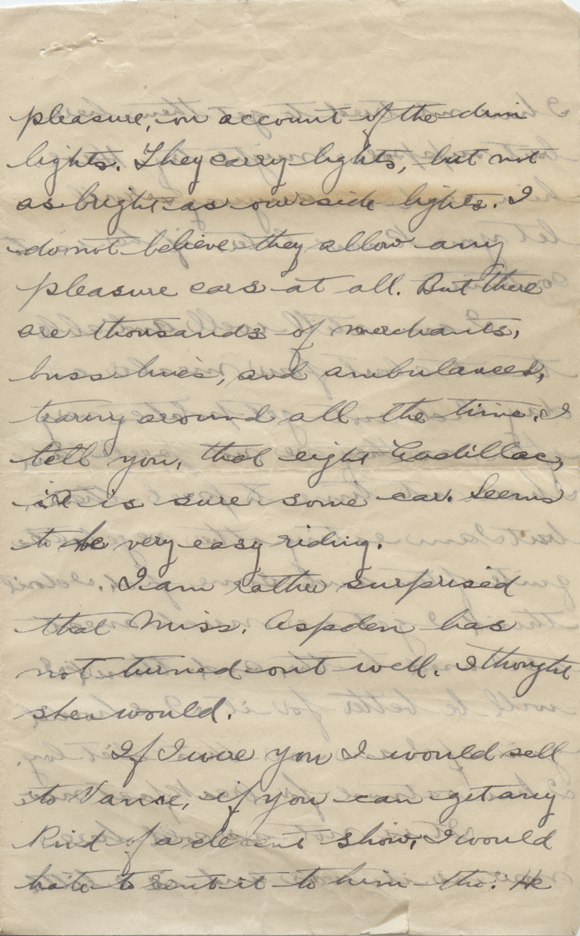 pleasure, on account of the dim
lights. They carry lights, but not
as bright as our side lights. I
do not believe they allow any
pleasure cars at all. But there
are thousands of merchants,
buss lines, and ambulances,
taring around all the time. I
tell you, that eight Cadillac,
it is sure some car. Seems
to be very easy riding.
I am rather surprised
that Miss. Aspden has
not turned out well. I thought
she would.
If I were you I would sell
to Vance, if you can get any
kind of a decent show, I would
hate to rent it to him tho. He